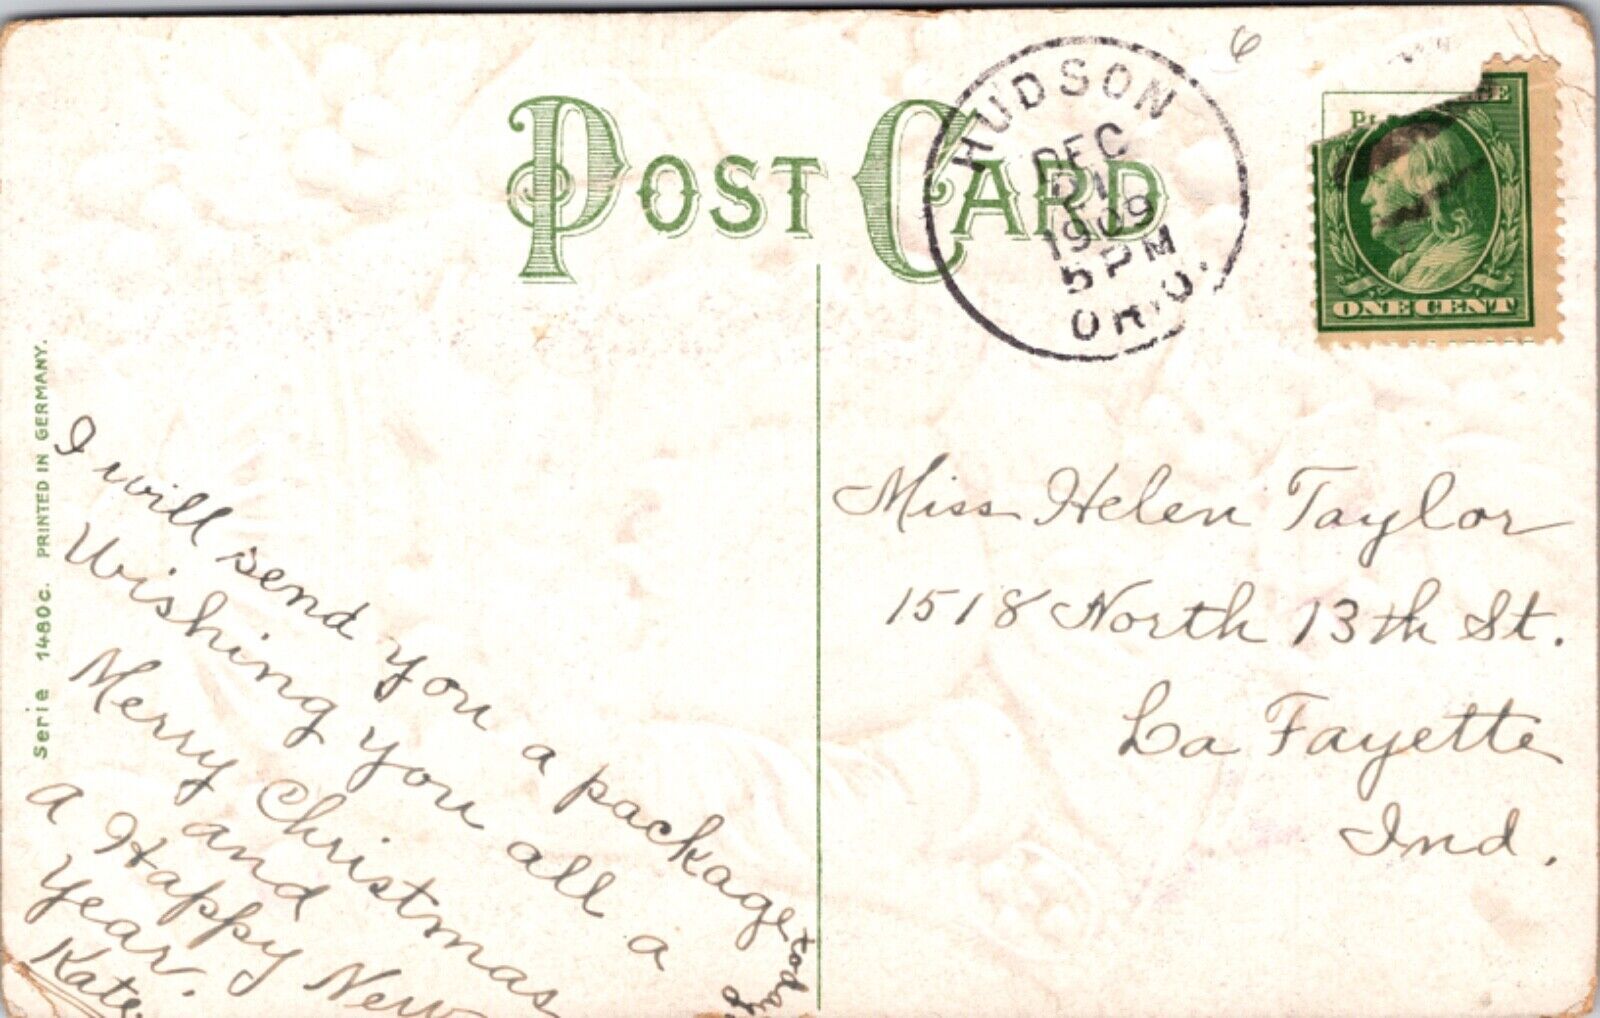 6
POST CARD
HUDSON
DEC
21
1909
5 PM
OHIO.
ONE CENT
Serie 1480c. PRINTED IN GERMANY.
I will send you a package today
Wishing you all a
Merry Christmas
and
a Happy New
Year.
Kate
Miss Helen Taylor
1518 North 13th St.
La Fayette
Ind.